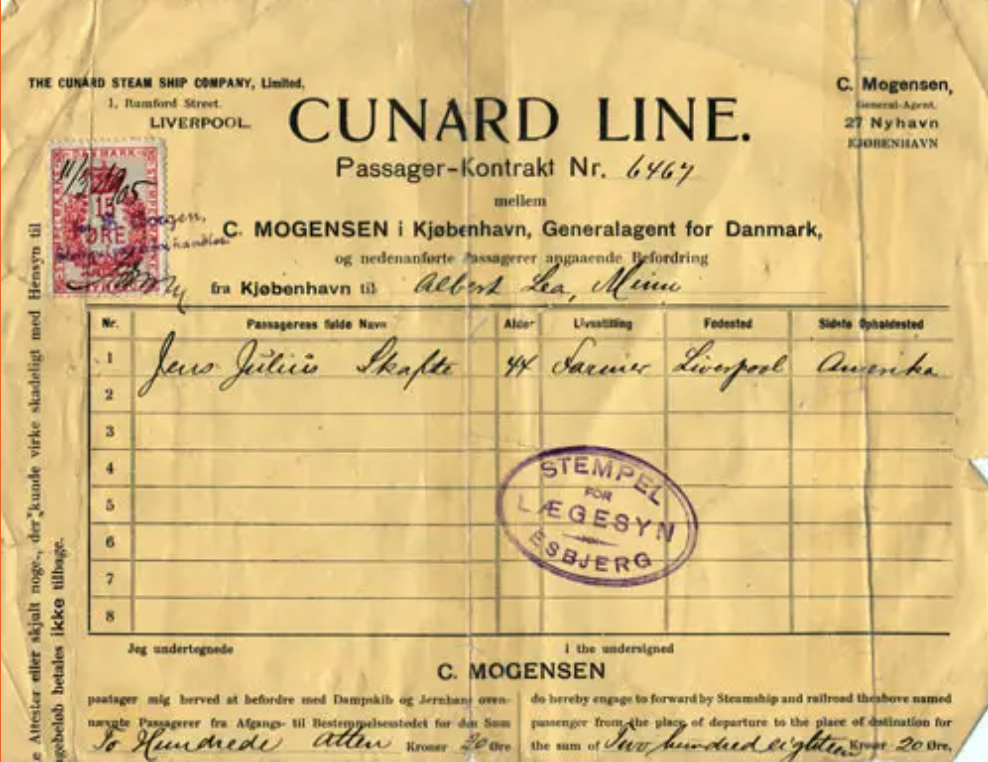 THE CUNARD STEAM SHIP COMPANY, Limited,
1, Rumford Street.
LIVERPOOL.
C. Mogensen,
General-Agent.
27 Nyhavn
KJØBENHAVN
CUNARD LINE.
Passager-Kontrakt Nr. 6467
mellem
C. MOGENSEN i Kjøbenhavn, Generalagent for Danmark,
og nedenanførte Passagerer angaaende Befordring
fra Kjøbenhavn til Albert Lea, Minn
DANMARK
15
ØRE
Nr. Passagerens fulde Navn Alder Livsstilling Fødested Sidste Opholdssted
1 Jens Julius Skafte 44 Farmer Liverpool Amerika
2
3
4
5
6
7
8
STEMPEL
FOR
LÆGESYN
ESBJERG
Jeg undertegnede
i the undersigned
C. MOGENSEN
paatager mig herved at befordre med Dampskib og Jernbane oven-
nævnte Passagerer fra Afgangs- til Bestemmelsesstedet for den Sum
To Hundrede Atten Kroner 20 Øre
do hereby engage to forward by Steamship and railroad theabove named
passenger from the place of departure to the place of distination for
the sum of Two hundred eighteen Kroner 20 Øre,
e Attester eller skjult noge., der kunde virke skadeligt med Hensyn til
gebeløb betales ikke tilbage.